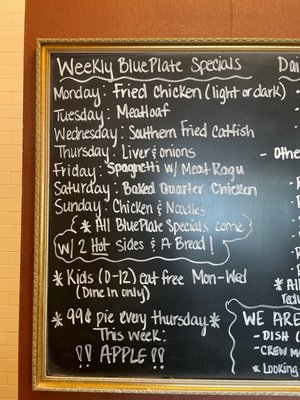 Weekly Blue Plate Specials
Monday: Fried Chicken (light or dark)
Tuesday: Meatloaf
Wednesday: Southern Fried Catfish
Thursday: Liver & onions
Friday: Spaghetti w/ Meat Ragu
Saturday: Baked Quarter Chicken
Sunday: Chicken & Noodles
* All Blue Plate Specials come
w/ 2 Hot sides & A Bread!
* Kids (0-12) eat free Mon-Wed
(Dine in only)
* 99¢ pie every Thursday *
This week:
!! APPLE !!
Dai
- Othe
* Al
WE ARE
- DISH
- CREW M
* Looking